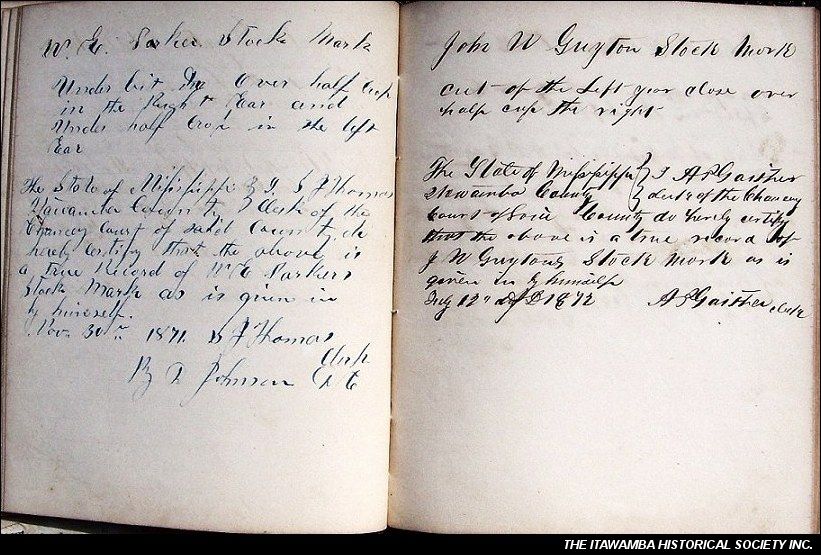 W. E. Parker Stock Mark
Under bit In Over half Crop
in the Right Ear and
Under half Crop in the left
Ear
The State of Mississippi } I. S J Thomas
Itawamba County } Clerk of the
Chancery Court of said County, do
hereby certify that the above is
a true Record of W E Parkers
Stock Mark as is given in
by himself.
Nov. 30th 1871. S J Thomas
Clerk
By D Johnson D C
John W Guyton Stock Mark
cut of the Left year close over
half cop the right
The State of Mississippi } I A P Gaither
Itawamba County } clerk of the Chancery
Court of Said County do hereby certify
that the above is a true record of
J W Guytons Stock Mark as is
given in by himself
12" 1872 A P Gaither clerk
THE ITAWAMBA HISTORICAL SOCIETY INC.